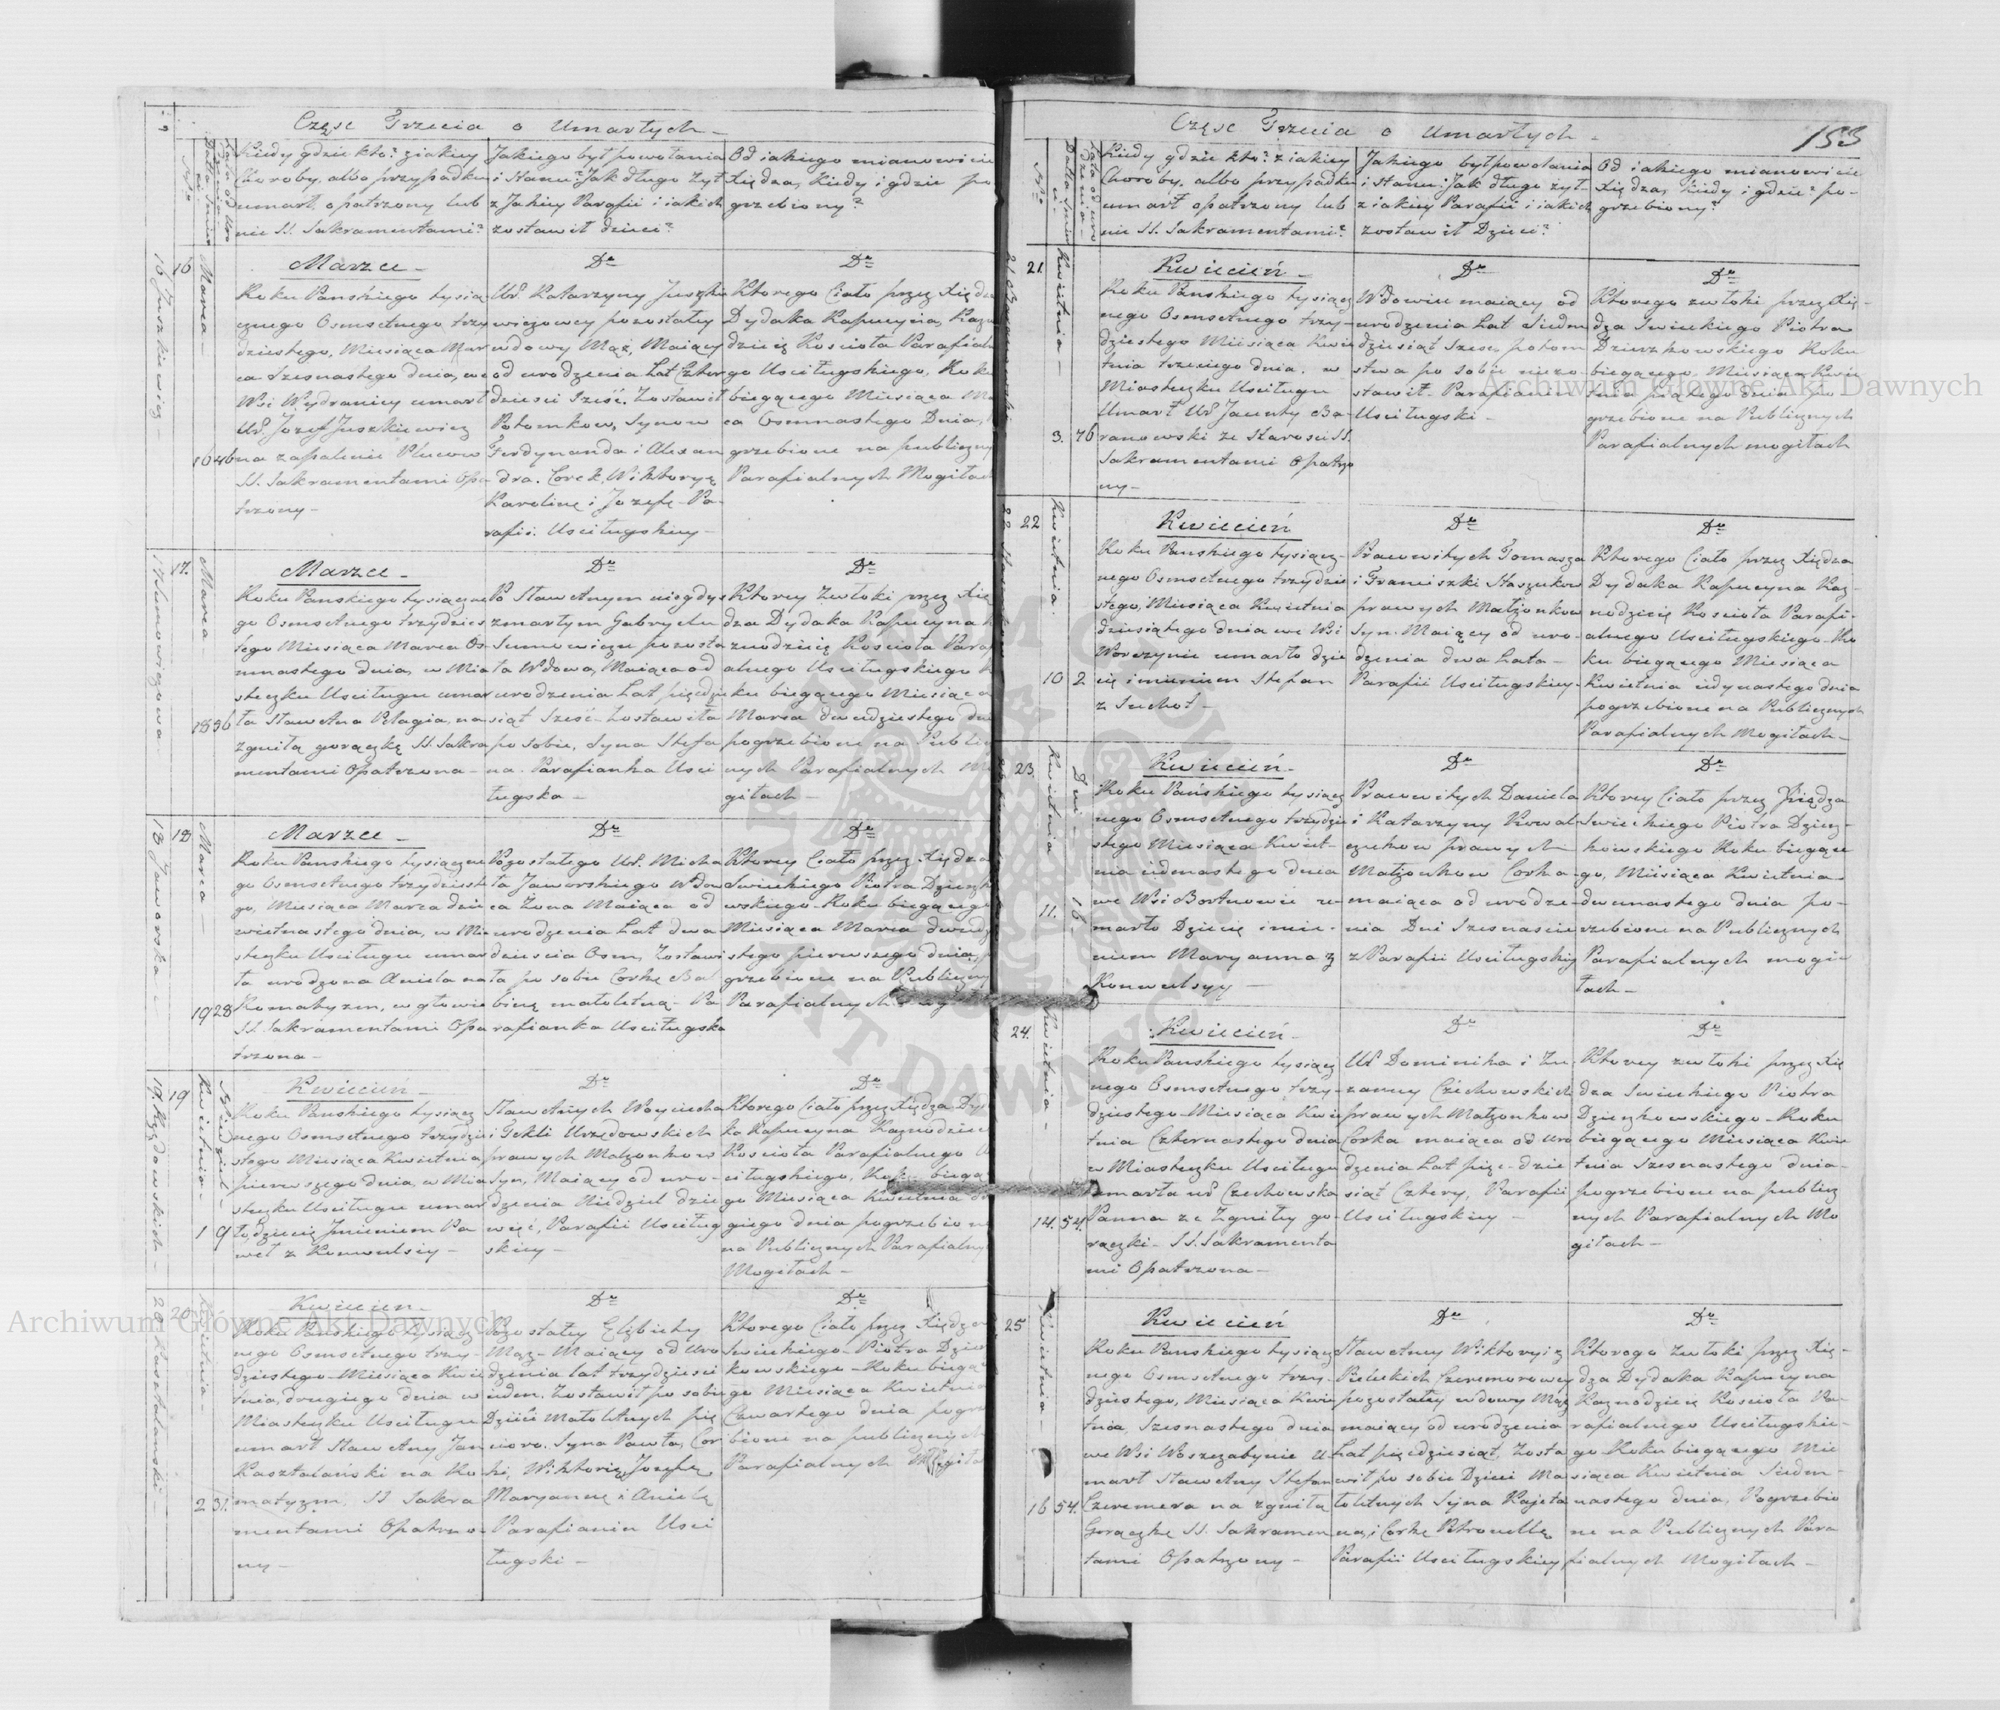 Część Trzecia o Umarłych
Kiedy gdzie kto? z iakiey
Choroby, albo przypadku
umarł, opatrzony lub
nie SS. Sakramentami?
Jakiego był powołania
i Stanu? Jak długo żył
z Jakiey Parafii i iakich
zostawił dzieci?
Od iakiego mianowicie
Xiędza, Kiedy i gdzie po
grzebiony?
16
Marca
16 46
16 Juszkiewicz
Marzec
Roku Pańskiego tysią
cznego Osmsetnego trzy
dziestego, Miesiąca Mar
ca Szesnastego dnia, we
Wsi Wydranicy umarł
Ur. Jozef Juszkiewicz
na zapalenie Płucow
SS. Sakramentami Opa
trzony
Dto
Ur. Katarzyny Juszkie
wiczowey pozostałey
wdowy Mąż, Maiący
od urodzenia Lat Czter
dzieści Sześć. Zostawił
Potomkow, Synow
Ferdynanda i Alexan
dra. Corek, Wiktoryę
Karolinę i Jozefę Pa
rafii Usciługskiey
Dto
Ktorego Ciało przez Xiędza
Dydaka Kapucyna, Kazno
dzieię Kościoła Parafial
go Usciługskiego, Roku
biegącego Miesiąca Ma
ca Osmnastego Dnia,
grzebione na publiczny
Parafialnych Mogiłach
17.
Marca
18 56
Marzec
Roku Pańskiego tysiączne
go Osmsetnego trzydzies
tego Miesiąca Marca Os
mnastego dnia, w Mia
steczku Usciługu umar
ła Sławetna Pelagia, na
zgniłą gorączkę SS. Sakra
mentami Opatrzona
Dto
Po Sławetnym niegdys
zmarłym Gabryelu
pozosta
ła Wdowa, Maiąca od
urodzenia Lat pięćdzie
siąt Sześć Zostawiła
po sobie, Syna Stefa
na. Parafianka Usci
ługska
Dto
Ktorey Zwłoki przez Xię
dza Dydaka Kapucyna
znodzieię Kościoła Para
alnego Usciługskiego
ku biegącego Miesiąca
Marca dwudziestego dnia
pogrzebione na Publi
nych Parafialnych Mo
giłach
18
Marca
19 28
18 Jaworska
Marzec
Roku Pańskiego tysiączne
go Osmsetnego trzydzieste
go, Miesiąca Marca dzie
wietnastego dnia, w Mia
steczku Usciługu umar
ła urodzona Aniela na
Romatyzm, w głowie
SS. Sakramentami Opa
trzona
Dto
Pozostałego Ur. Micha
ła Jaworskiego Wdow
ca Żona Maiąca od
urodzenia Lat dwa
dzieścia Osm, Zostawi
ła po sobie Corkę Bal
binę małoletnią Pa
rafianka Usciługska
Dto
Ktorey Ciało przez Xiędza
Swieckiego Piotra Dzierzk
wskiego Roku biegącego
Miesiąca Marca dwudzie
stego pierwszego dnia,
grzebione na Publiczny
Parafialnych Mogiłach
19
Kwietnia
1 9
19. Rzędowskich
Kwiecień
Roku Pańskiego tysiącz
nego Osmsetnego trzydzie
stego Miesiąca Kwietnia
pierwszego dnia, w Mia
steczku Usciługu umar
ło dziecię Jmieniem Pa
weł z Konwulsiy
Dto
Sławetnych Woyciecha
i Tekli Urzędowskich
prawych Małżonkow
Syn, Maiący od uro
dzenia Niedziel dzie
więć, Parafii Usciług
skiey
Dto
Ktorego Ciało przez Xiędza Dyda
ka Kapucyna Kaznodzieię
Kościoła Parafialnego U
sciługskiego, Roku biegą
go Miesiąca Kwietnia dru
giego dnia pogrzebione
na Publicznych Parafialny
Mogiłach
20
Kwietnia
2 31.
20 Kasztalanski
Kwiecien
Roku Pańskiego tysiącz
nego Osmsetnego trzy
dziestego Miesiąca Kwie
tnia, drugiego dnia w
Miasteczku Usciługu
umarł Sławetny Jan
Kasztalański na Ro
matyzm, SS Sakra
mentami Opatrzo
ny
Dto
Pozostałey Elżbiety
Mąż Maiący od uro
dzenia lat trzydzieści
ieden. Zostawił po sobie
Dzieci Małoletnych pię
cioro. Syna Pawła, Cor
ki, Wiktorię, Jozefę
Maryannę i Anielę
Parafianin Usci
ługski
Dto
Ktorego Ciało przez Xiędza
Swieckiego Piotra Dzierz
kowskiego Roku biegą
go Miesiąca Kwietnia
Czwartego dnia pogrze
bione na publicznych
Parafialnych Mogiła
Część Trzecia o Umarłych
153
Kiedy gdzie kto? z iakiey
Choroby, albo przypadku
umarł opatrzony lub
nie SS. Sakramentami?
Jakiego był powołania
i Stanu? Jak długo żył
z iakiey Parafii i iakich
zostawił Dzieci?
Od iakiego mianowicie
Xiędza, Kiedy i gdzie po-
grzebiony?
21.
Kwietnia
3. 76
21 Baranowski
Kwiecień
Roku Pańskiego tysiącz
nego Osmsetnego trzy-
dziestego Miesiąca Kwie
tnia trzeciego dnia, w
Miasteczku Usciługu
Umarł Ur. Jacenty Ba-
ranowski ze Starosci SS.
Sakramentami Opatrzo
ny
Dto
Wdowiec maiący od
urodzenia Lat Siedm
dziesiąt Sześć, potom
stwa po sobie niezo
stawił. Parafianin
Usciługski
Dto
Ktorego zwłoki przez Xię-
dza Swieckiego Piotra
Dzierzkowskiego Roku
biegącego, Miesiąca Kwie
tnia piątego dnia po
grzebione na Publicznych
Parafialnych mogiłach
22
Kwietnia
10 2
Kwiecień
Roku Pańskiego tysiącz-
nego Osmsetnego trzydzie
stego, Miesiąca Kwietnia
dziesiątego dnia we Wsi
Worczynie umarło dzie
cię imieniem Stefan
z Suchot
Dto
Pracowitych Tomasza
i Franciszki Staszukow
prawych Małżonkow
Syn. Maiący od uro-
dzenia dwa Lata
Parafii Usciługskiey
Dto
Ktorego Ciało przez Xiędza
Dydaka Kapucyna Kaz-
nodzieię Kościoła Parafi
alnego Usciługskiego Ro
ku biegącego Miesiąca
Kwietnia iedynastego dnia
pogrzebione na Publicznych
Parafialnych Mogiłach
23.
Kwietnia
Dni
11. 16.
Kwiecień
Roku Pańskiego tysiącz
nego Osmsetnego trzydzie
stego Miesiąca Kwiet-
nia iednastego dnia
we Wsi Bortnowie u-
marło Dziecię imie-
niem Maryanna z
Konwulsyy
Dto
Pracowitych Daniela
i Katarzyny Kowal
czukow prawych
Małżonkow Corka
maiąca od urodze-
nia Dni Szesnaście
z Parafii Usciługskiey
Dto
Ktorey Ciało przez Xiędza
Swieckiego Piotra Dzierz-
kowskiego Roku biegące
go, Miesiąca Kwietnia
dwunastego dnia po-
grzebione na Publicznych
Parafialnych mogi-
łach
24.
Kwietnia
14. 54.
Kwiecień
Roku Pańskiego tysiącz
nego Osmsetnego trzy-
dziestego Miesiąca Kwie
tnia Czternastego dnia
w Miasteczku Usciługu
umarła Ur Czechowska
Panna ze Zgniłey go-
rączki SS. Sakramenta
mi Opatrzona
Dto
Ur Dominika i Zu-
zanny Czechowskich
prawych Małżonkow
Corka maiąca od uro
dzenia Lat pięć-dzie
siąt Cztery, Parafii
Usciługskiey
Dto
Ktorey zwłoki przez Xię
dza Swieckiego Piotra
Dzierzkowskiego Roku
biegącego Miesiąca Kwie
tnia Szesnastego dnia
pogrzebione na publicz
nych Parafialnych Mo
giłach
25
Kwietnia
16 54.
Kwiecień
Roku Pańskiego tysiącz
nego Osmsetnego trzy-
dziestego, Miesiąca Kwie
tnia, Szesnastego dnia
we Wsi Woszczatynie u
marł Sławetny Stefan
Czeremera na zgniłą
Gorączkę SS. Sakramen
tami Opatrzony
Dto
Sławetney Wiktoryi z
Czeremerowey
pozostałey wdowy Mąż
maiący od urodzenia
Lat pięćdziesiąt, Zosta
wił po sobie Dzieci Ma
łoletnych Syna Kajeta
na, i Corkę Petronellę
Parafii Usciługskiey
Dto
Ktorego Zwłoki przez Xię-
dza Dydaka Kapucyna
Kaznodzieię Kościoła Pa-
rafialnego Usciługskie-
go Roku biegącego Mie
siąca Kwietnia Siedm-
nastego dnia, Pogrzebio
ne na Publicznych Para
fialnych Mogiłach
Archiwum Główne Akt Dawnych
Archiwum Główne Akt Dawnych